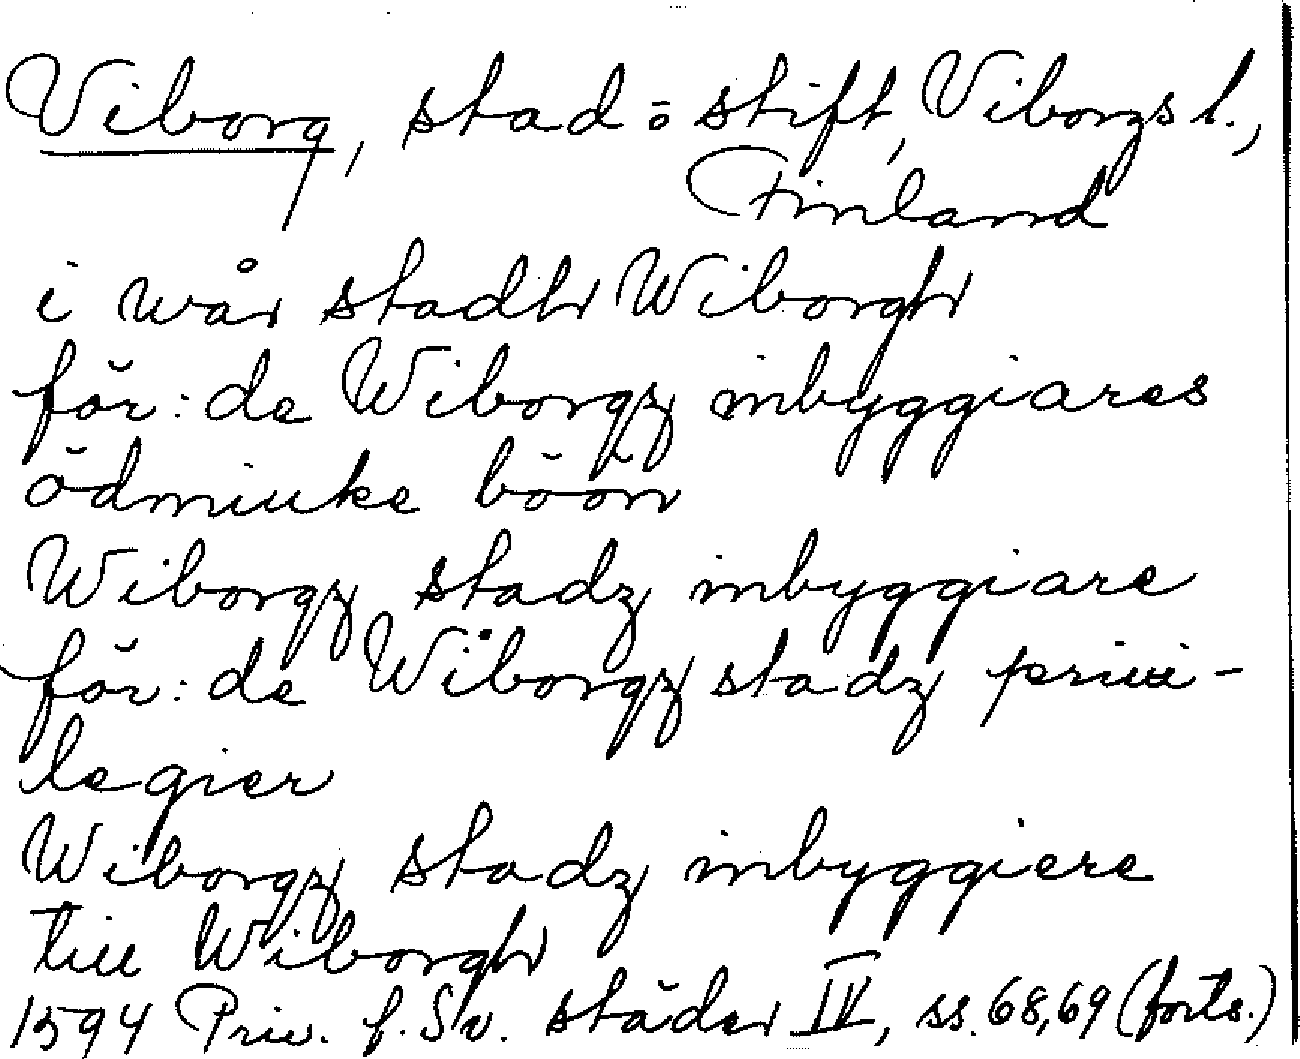 Viborg, stad o stift, Viborgs l.,
Finland
i wår stadh Wiborgh
för: de Wiborgz inbyggiares
ödmiuke böön
Wiborgz stadz inbyggiare
för: de Wiborgz stadz priui-
legier
Wiborgz stadz inbyggiere
till Wiborgh
1594 Priv. f. Sv. städer IV, ss. 68,69 (forts.)